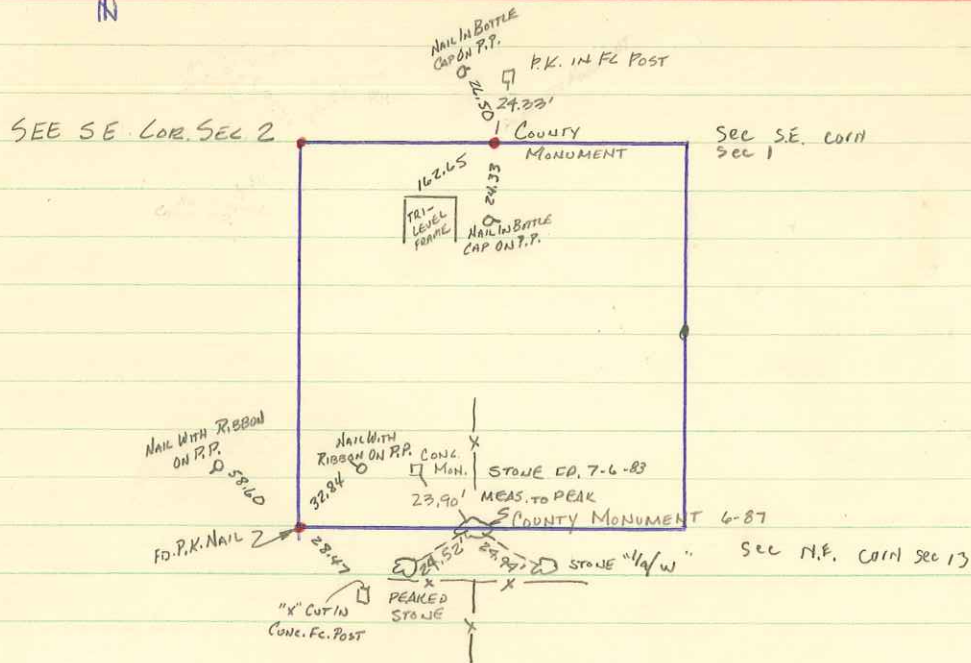 N
NAIL IN BOTTLE
CAP ON P.P.
P.K. IN FC POST
26.50
24.33'
SEE S.E. COR. SEC 2
COUNTY
MONUMENT
See S.E. corn
Sec 1
162.65
24.33
TRI-
LEVEL
FRAME
NAIL IN BOTTLE
CAP ON P.P.
NAIL WITH RIBBON
ON P.P.
58.60
NAIL WITH
RIBBON ON P.P.
32.84
CONC.
MON.
23.90'
STONE FD. 7-6-83
MEAS. TO PEAK
COUNTY MONUMENT 6-87
FD. P.K. NAIL
28.47
24.52'
24.94'
STONE
See N.E. corn sec 13
PEAKED
STONE
"X" CUT IN
CONC. FC. POST